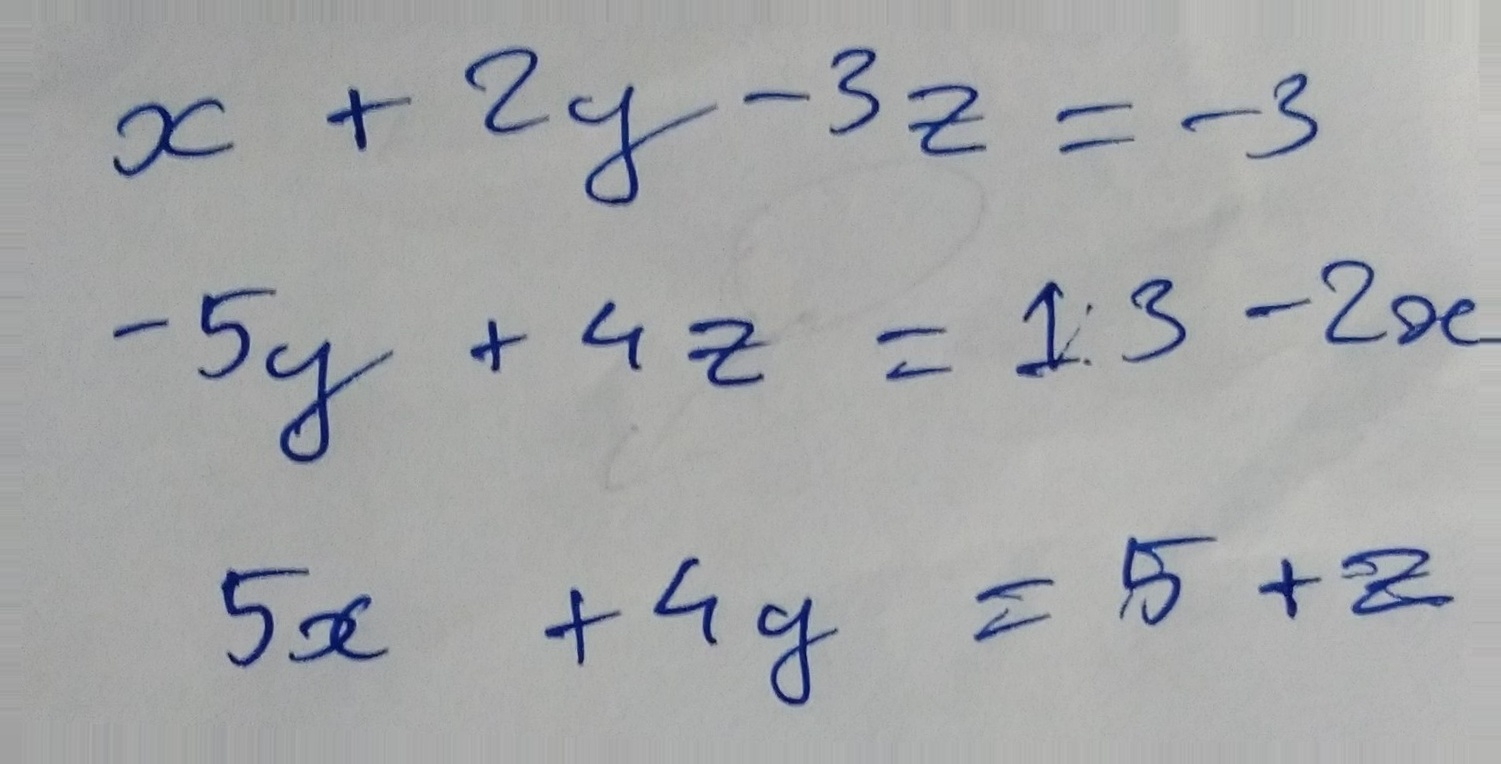 x + 2y - 3z = -3
-5y + 4z = 13 - 2x
5x + 4y = 5 + z